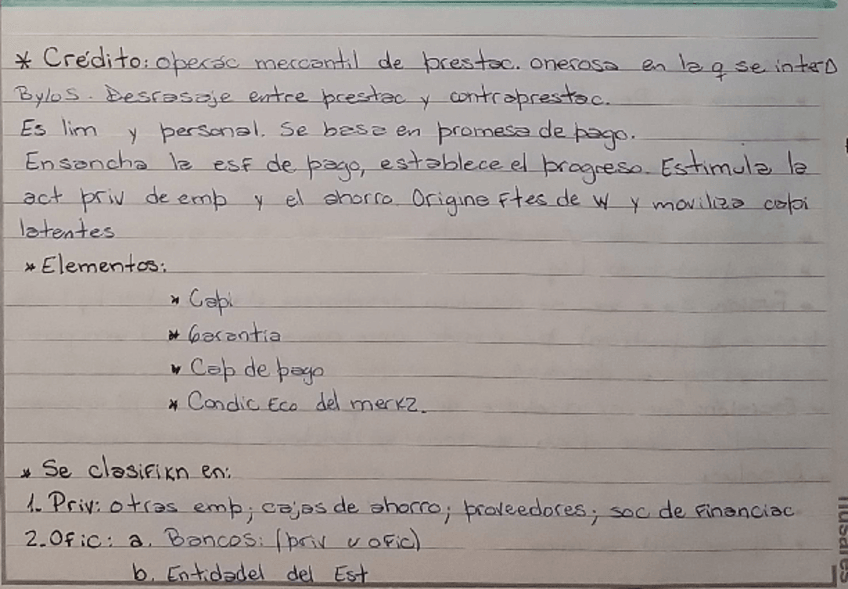 * Crédito: operac mercantil de prestac. onerosa en la q se interD
Bylos. Desrasaje entre prestac y contraprestac.
Es lim y personal. Se basa en promesa de pago.
Ensancha la esf de pago, establece el progreso. Estimula la
act priv de emp y el ahorro. Origina ftes de W y moviliza capi
latentes
* Elementos:
* Capi
* Garantia
* Cap de pago
* Condic Eco del merk2.
* Se clasifikn en:
1. Priv: otras emp; cajas de ahorro; proveedores; soc de financiac
2. Ofic: a. Bancos: (priv u ofic)
b. Entidadel del Est